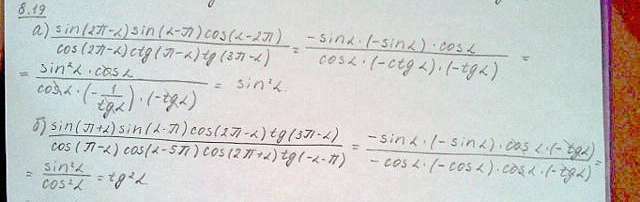 8.19
а) sin(2π-α)sin(α-π)cos(α-2π) / cos(2π-α)ctg(π-α)tg(3π-α) = -sinα·(-sinα)·cosα / cosα·(-ctgα)·(-tgα) =
= sin²α·cosα / cosα·(-1/tgα)·(-tgα) = sin²α.
б) sin(π+α)sin(α-π)cos(2π-α)tg(3π-α) / cos(π-α)cos(α-5π)cos(2π+α)tg(-α-π) = -sinα·(-sinα)·cosα·(-tgα) / -cosα·(-cosα)·cosα·(-tgα) =
= sin²α / cos²α = tg²α